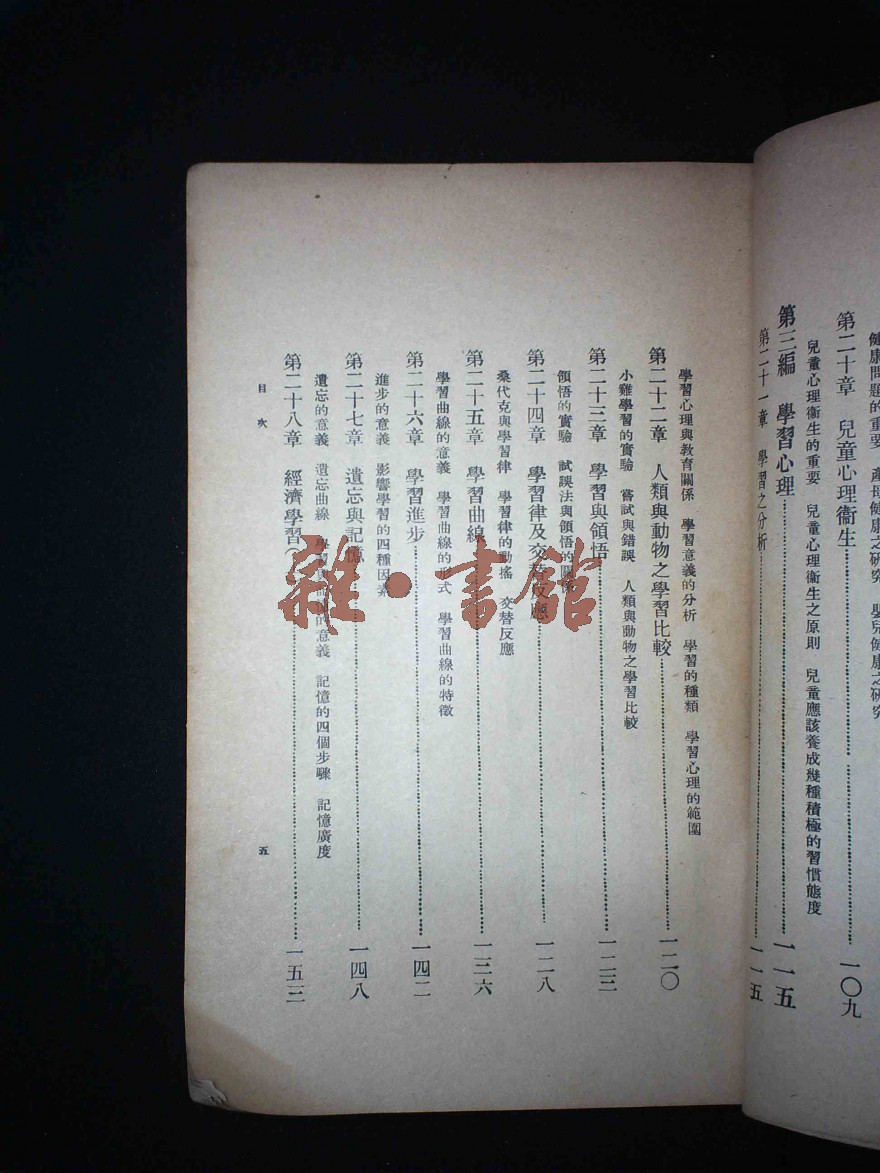 健康問題的重要　產母健康之研究　嬰兒健康之研究
第二十章　兒童心理衞生 一〇九
兒童心理衞生的重要　兒童心理衞生之原則　兒童應該養成幾種積極的習慣態度
第三編　學習心理 一一五
第二十一章　學習之分析 一一五
學習心理與教育關係　學習意義的分析　學習的種類　學習心理的範圍
第二十二章　人類與動物之學習比較 一二〇
小雞學習的實驗　嘗試與錯誤　人類與動物之學習比較
第二十三章　學習與領悟 一二三
領悟的實驗　試誤法與領悟的關係
第二十四章　學習律及交替反應 一二八
桑代克與學習律　學習律的動搖　交替反應
第二十五章　學習曲線 一三六
學習曲線的意義　學習曲線的形式　學習曲線的特徵
第二十六章　學習進步 一四二
進步的意義　影響學習的四種因素
第二十七章　遺忘與記憶 一四八
遺忘的意義　遺忘曲線　學習與記憶的意義　記憶的四個步驟　記憶廣度
第二十八章　經濟學習 一五三
目次
五
雜·書館